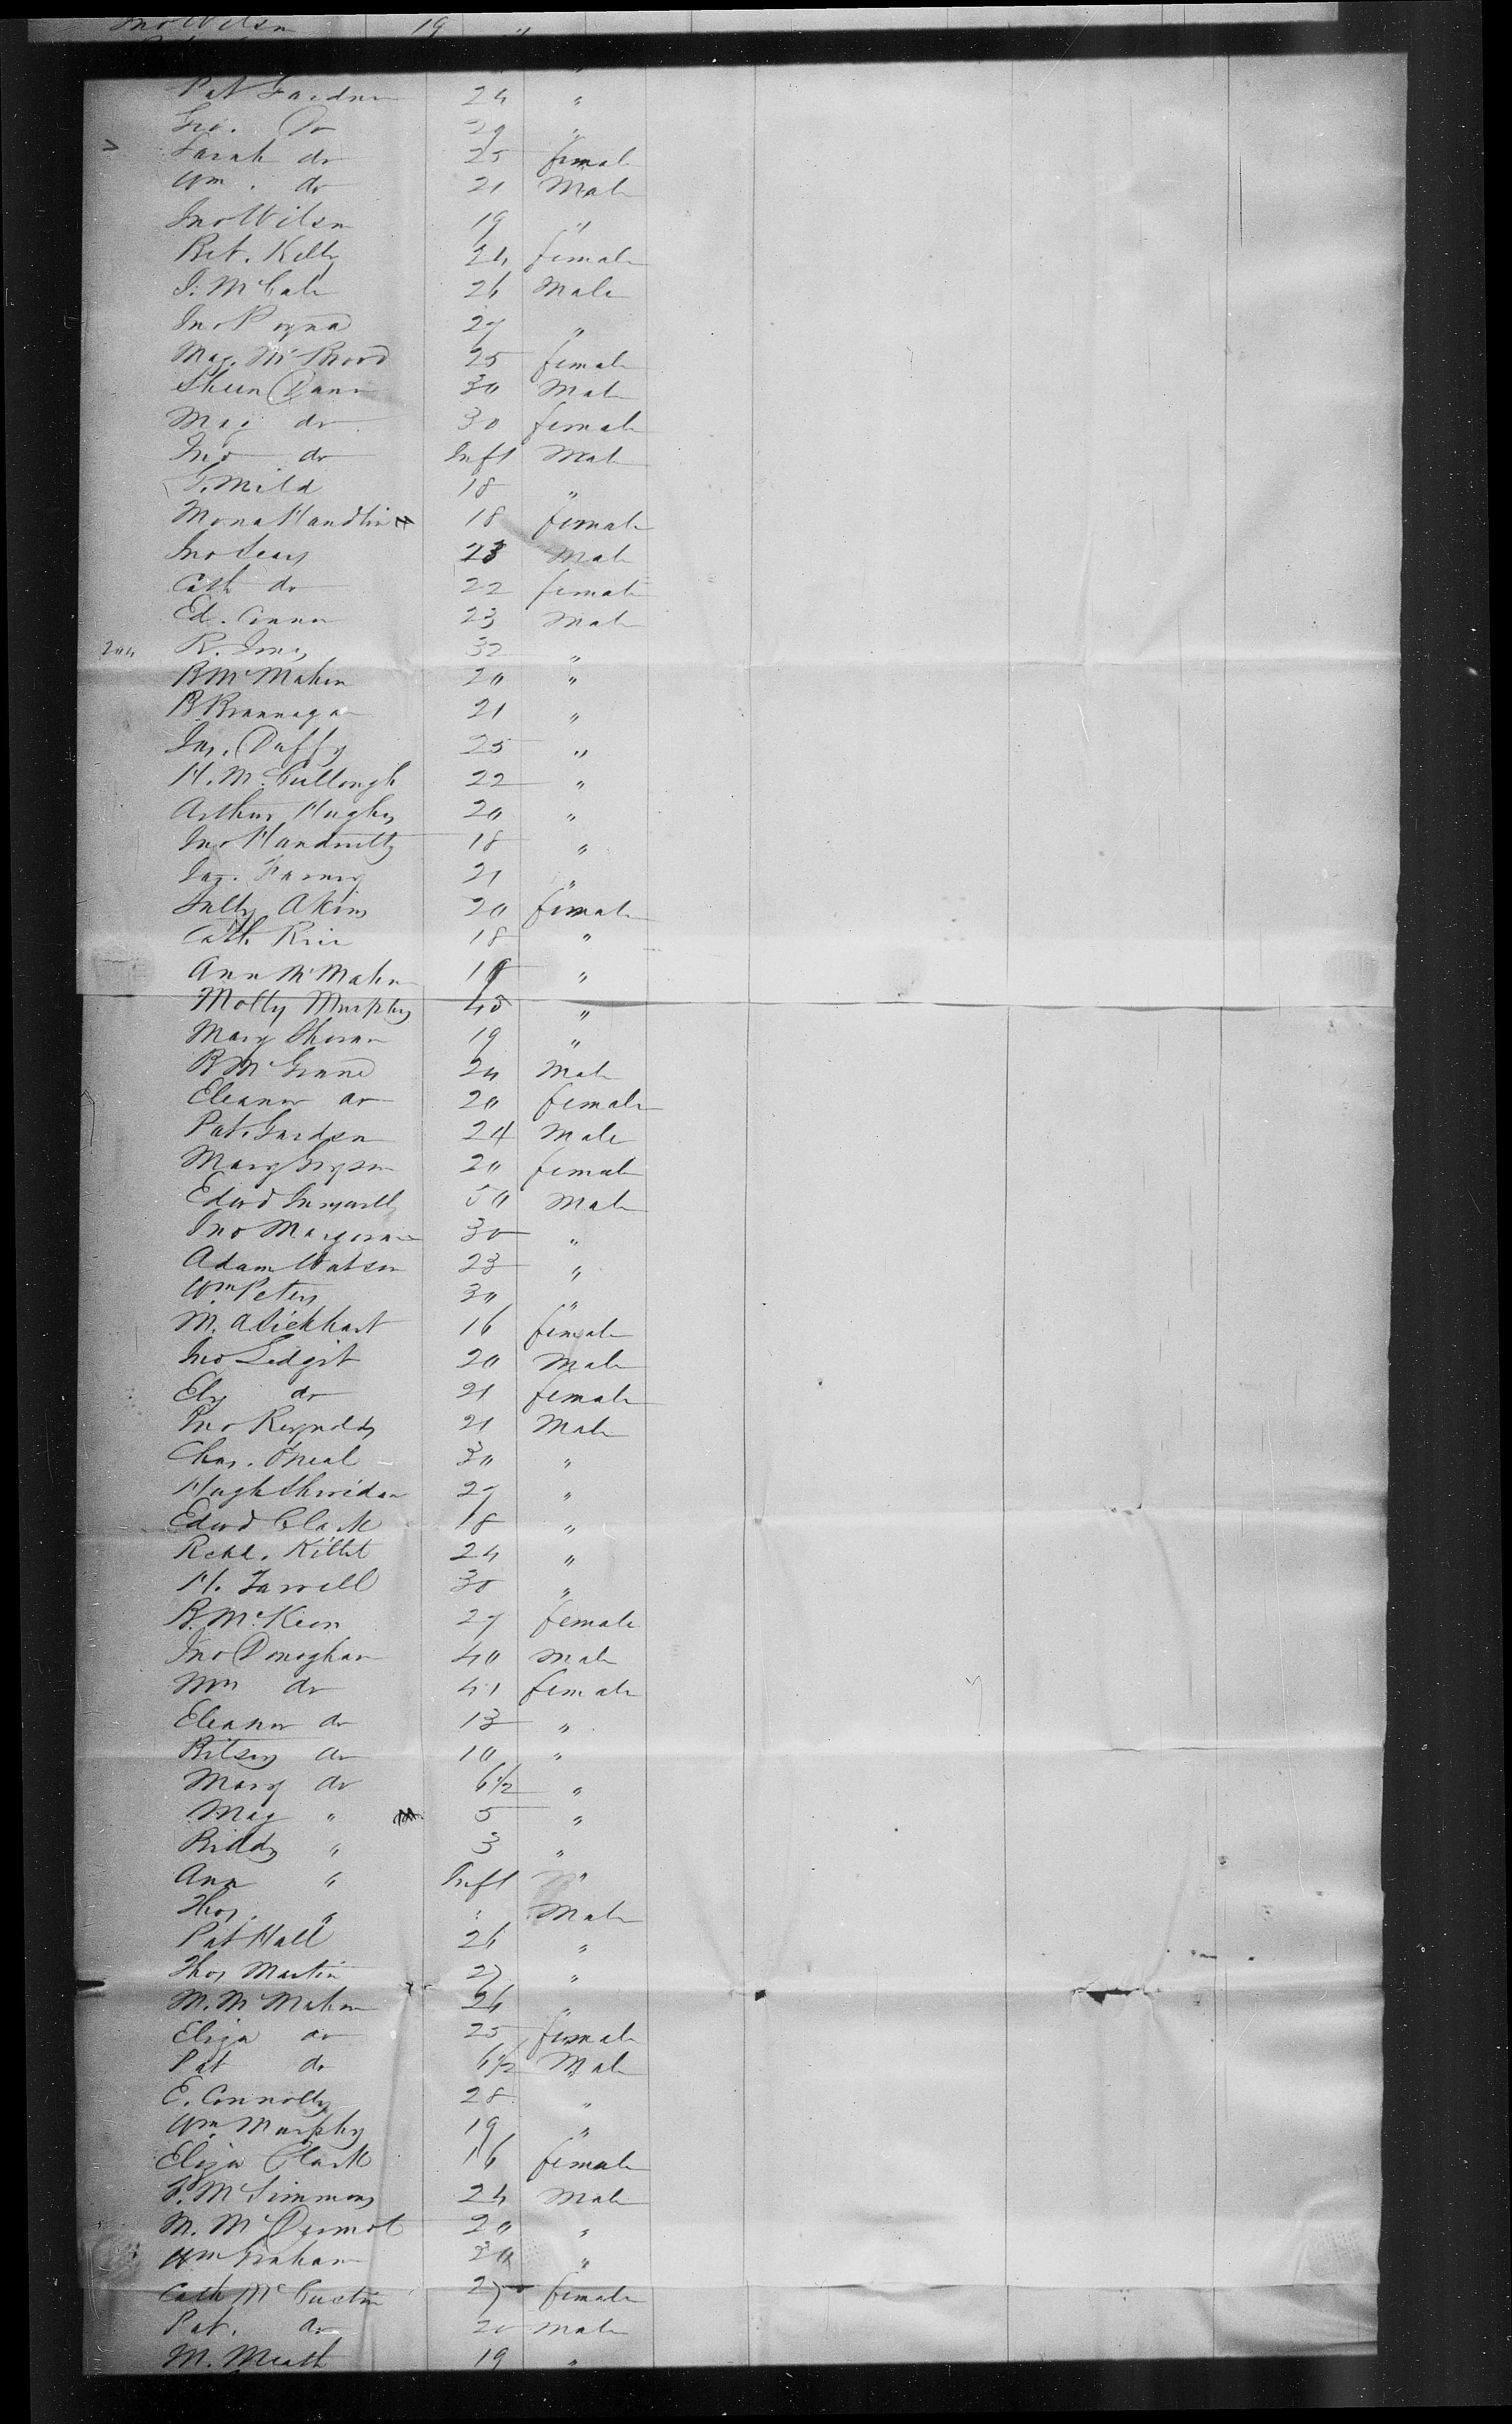 Jno Wilsn 19 "
Pat Gardner 24 "
Geo. Do 29 "
Sarah do 25 female
Wm. do 21 Male
Jno Wilsn 19 "
Bet. Kelly 24 female
J. McCabe 26 Male
Jno 27 "
Mag. Mc 25 female
Dann 30 Male
Mag do 30 female
Jno do Inft Male
G. Mild 18 "
Mona Handlin 18 female
Jno Leary 23 Male
Cath do 22 female
Ed. Connor 23 Male
204 R. Jones 32 "
B McMahon 20 "
B. Brannagan 21 "
Jas. Duffy 25 "
H. McCullough 22 "
Arthur Hughes 20 "
Jno 18 "
Jas. 21 "
Sally Akins 20 female
Cath Rice 18 "
Ann McMahn 19 "
Molly Murphy 45 "
Mary 19 "
B McGrane 24 Male
Eleanor do 20 female
Pat. 24 Male
Mary 20 female
Edwd 50 Male
Jno 30 "
Adam Watson 23 "
Wm Peters 30 "
M. A 16 female
Jno Ledgit 20 Male
Ely do 21 female
Jno Reynolds 21 Male
Chas. O'Neal 30 "
Hugh Sheridan 27 "
Edwd Clark 18 "
Richd. 24 "
H. Farrell 30 "
B. McKeon 27 female
Jno Donoghan 40 Male
Mrs do 41 female
Eleanor do 13 "
Betsey do 10 "
Mary do 6½ "
Mag " 5 "
Biddy " 3 "
Ann " Inft "
Thos. " " Male
Pat Hall 26 "
Thos Martin 27 "
M. McMahon 26 "
Eliza do 25 female
Pat do 6½ Male
E. Connolly 28 "
Wm. Murphy 19 "
Eliza Clark 16 female
McSimmons 24 Male
M. McDermot 20 "
Wm Graham 30 "
Cath Mc 27 female
Pat. do 20 Male
M. Meath 19 "